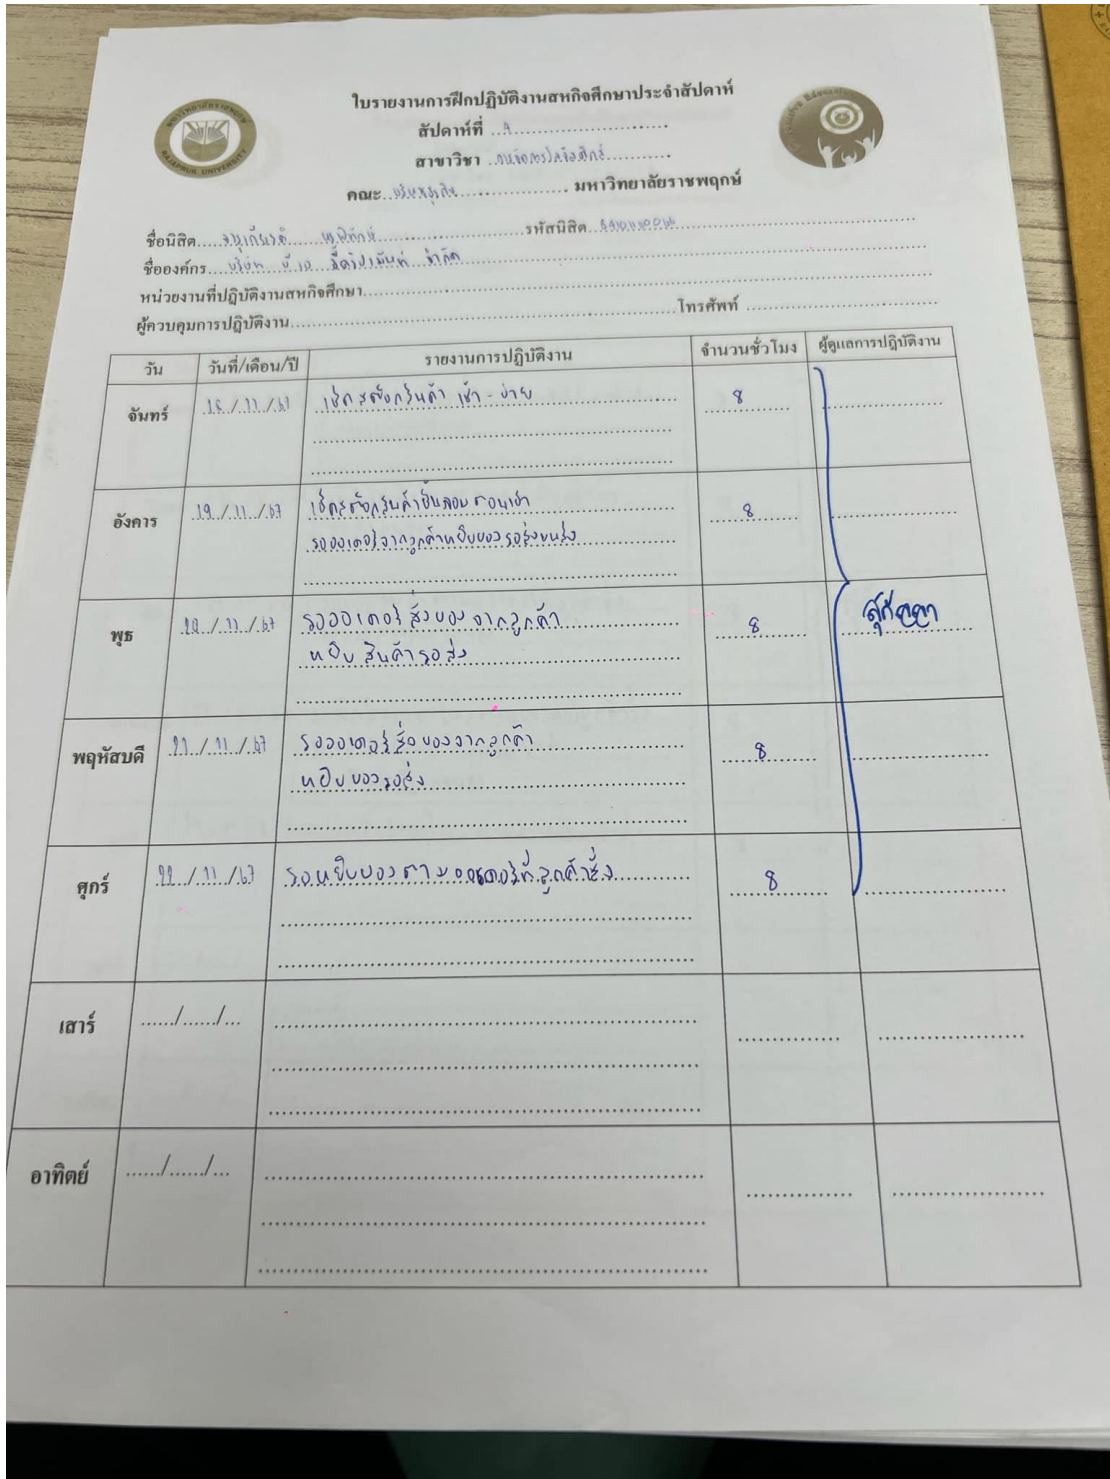 ใบรายงานการฝึกปฏิบัติงานสหกิจศึกษาประจำสัปดาห์
สัปดาห์ที่
สาขาวิชา การจัดการโลจิสติกส์
คณะ บริหารธุรกิจ มหาวิทยาลัยราชพฤกษ์
RAJAPRUK UNIVERSITY
ชื่อนิสิต รหัสนิสิต
ชื่อองค์กร บริษัท จำกัด
หน่วยงานที่ปฏิบัติงานสหกิจศึกษา
ผู้ควบคุมการปฏิบัติงาน โทรศัพท์
วัน วันที่/เดือน/ปี รายงานการปฏิบัติงาน จำนวนชั่วโมง ผู้ดูแลการปฏิบัติงาน
จันทร์ 18/11/67 เช็คสต๊อกสินค้า เช้า - บ่าย 8
อังคาร 19/11/67 เช็คสต๊อกสินค้าชั้นลอยตอนเช้า 8
รอออเดอร์จากลูกค้าหยิบของรอส่งขนส่ง
พุธ 20/11/67 รอออเดอร์สั่งของจากลูกค้า 8
หยิบสินค้ารอส่ง
พฤหัสบดี 21/11/67 รอออเดอร์สั่งของจากลูกค้า 8
หยิบของรอส่ง
ศุกร์ 22/11/67 รอหยิบของตามออเดอร์ที่ลูกค้าสั่ง 8
เสาร์
อาทิตย์